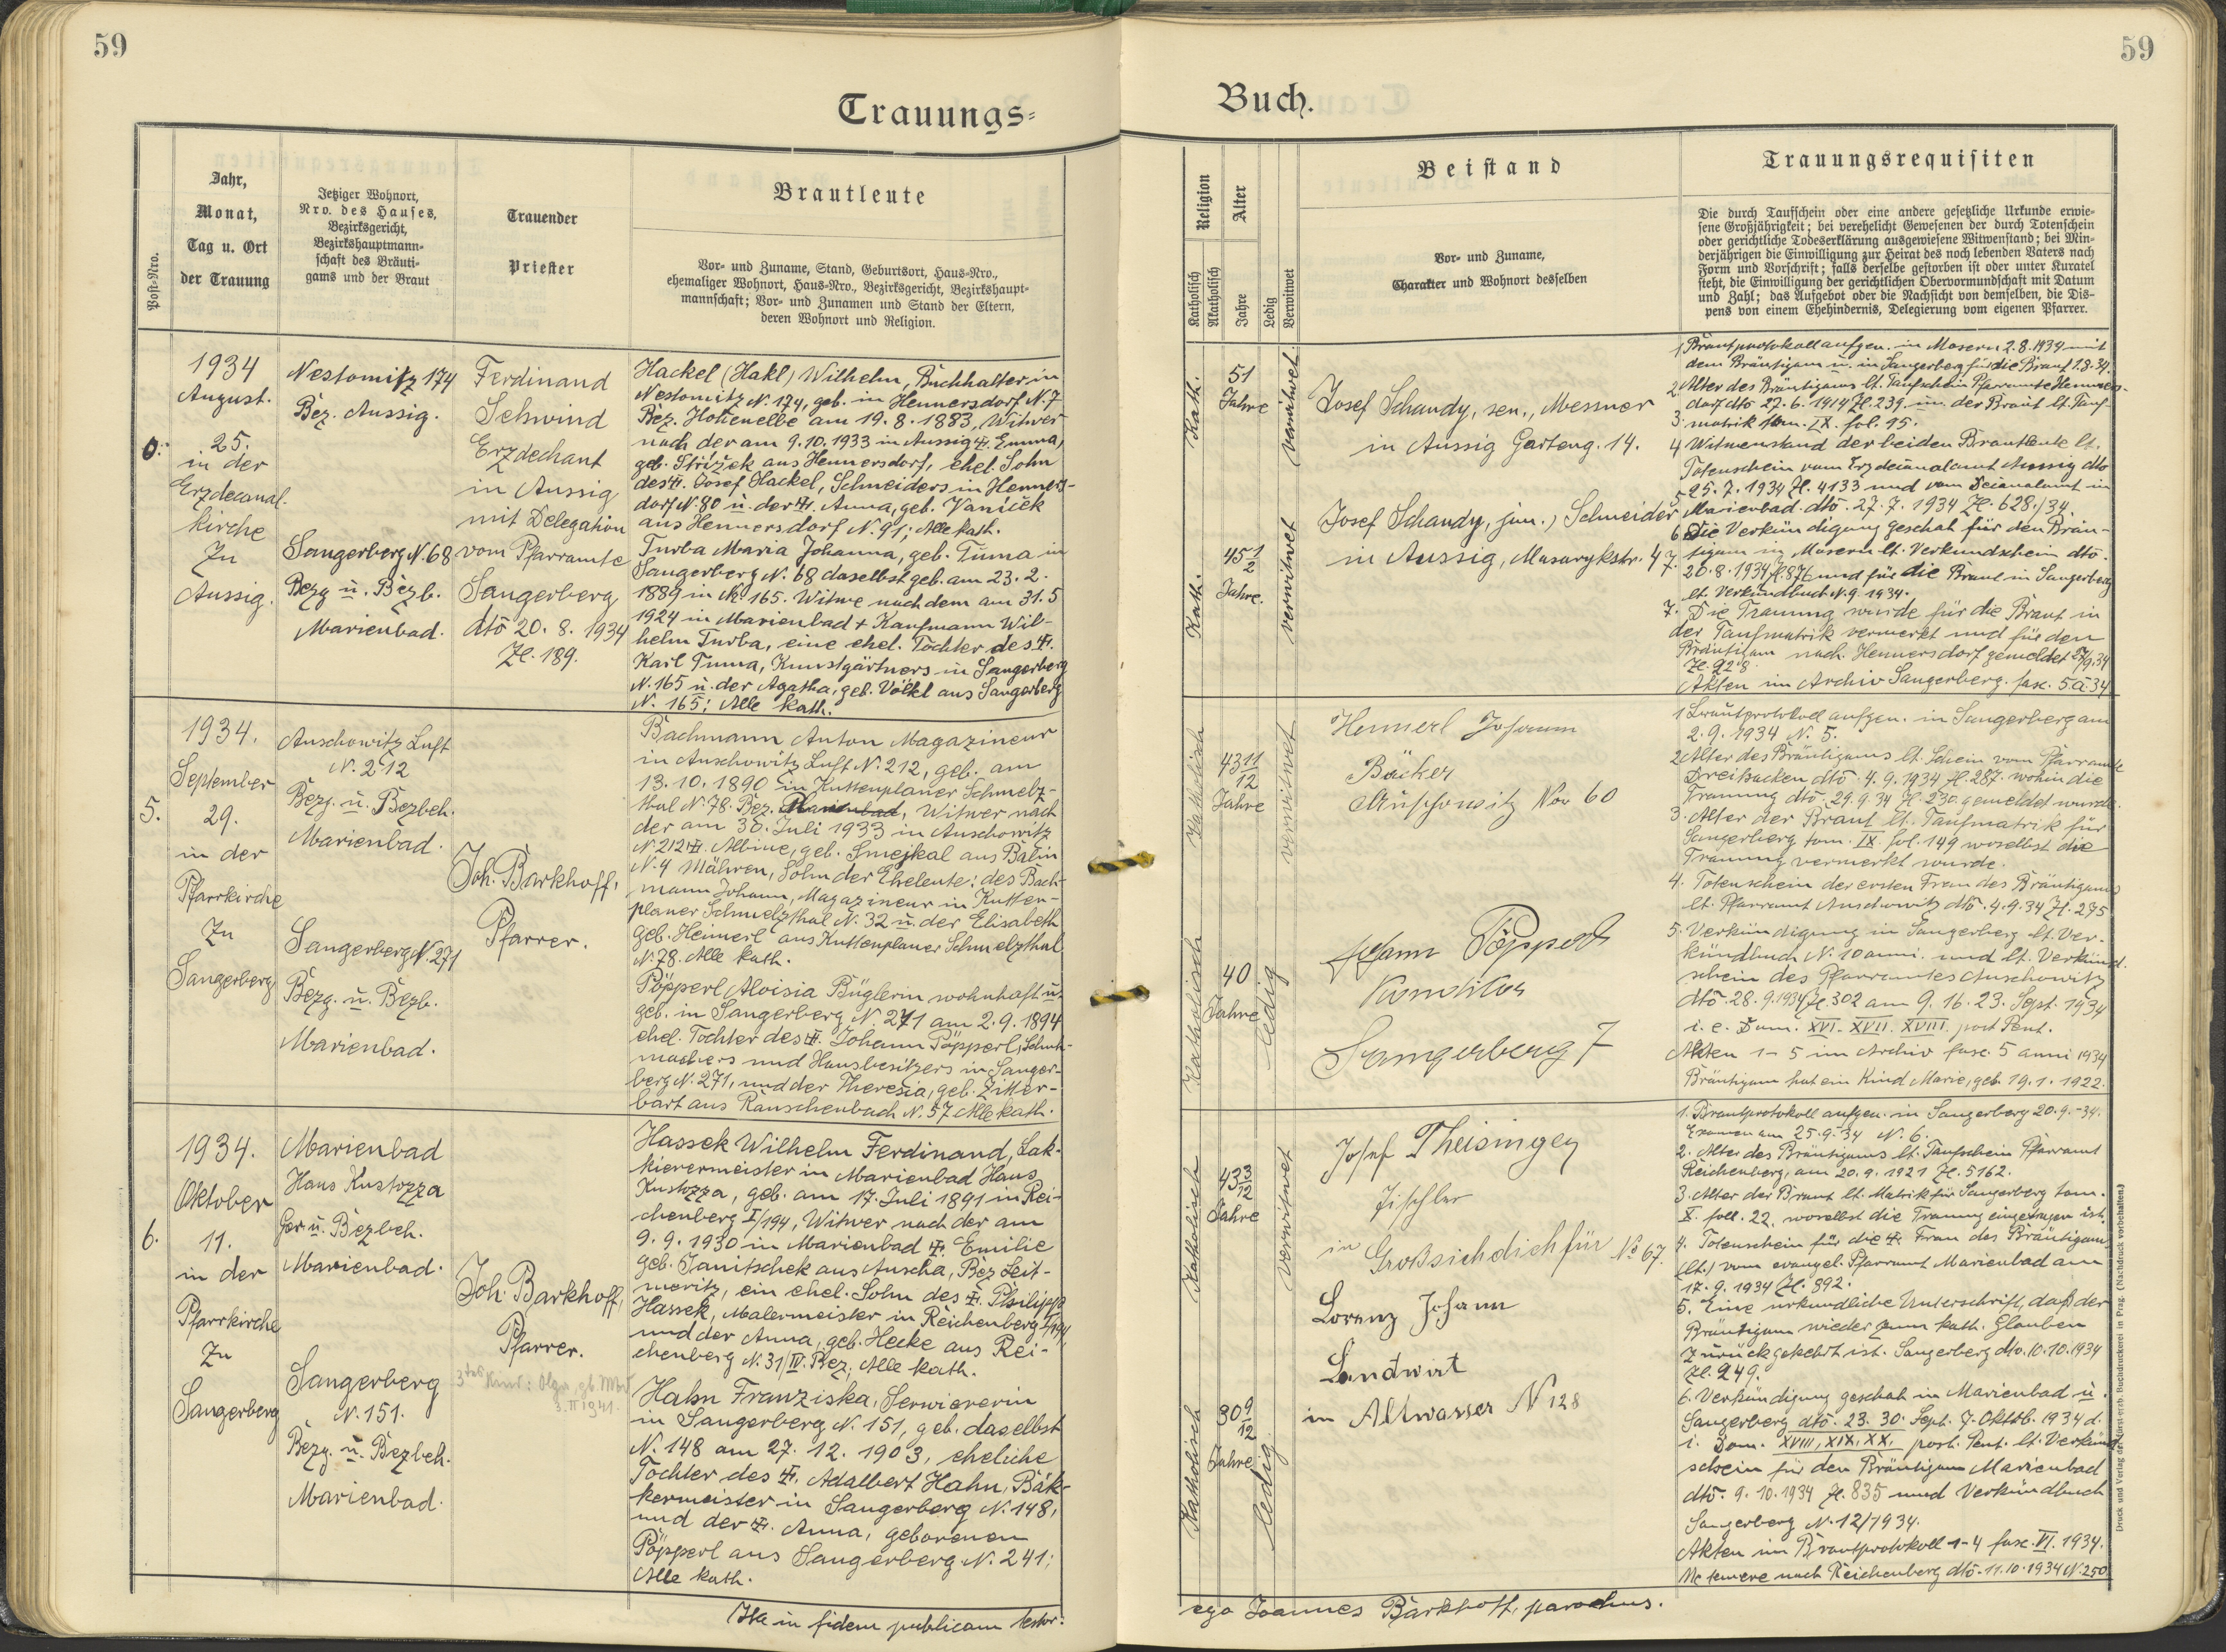 59
Trauungs=
Post=Nro.
Jahr,
Monat,
Tag u. Ort
der Trauung
Jetziger Wohnort,
Nro. des Hauses,
Bezirksgericht,
Bezirkshauptmann=
schaft des Bräuti=
gams und der Braut
Trauender
Priester
Brautleute
Vor= und Zuname, Stand, Geburtsort, Haus=Nro.,
ehemaliger Wohnort, Haus=Nro., Bezirksgericht, Bezirkshaupt=
mannschaft; Vor= und Zunamen und Stand der Eltern,
deren Wohnort und Religion.
1934
August.
25.
in der
Erzdecanal.
kirche
Zu
Aussig.
Nestomitz 174
Bez. Aussig.
Sangerberg N. 68
Bezg ü. Bezb.
Marienbad.
Ferdinand
Schwind
Erzdechant
in Aussig
mit Delegation
vom Pfarramte
Sangerberg
dtō 20. 8. 1934
Zl. 189.
Hackel (Hakl) Wilhelm, Buchhalter in
Nestomitz N. 174, geb. in Hennersdorf N. 7
Bez. Hohenelbe am 19. 8. 1883, Witwer
nach der am 9. 10. 1933 in Aussig Emma,
geb. Střížek aus Hennersdorf, ehel. Sohn
des Josef Hackel, Schneiders in Henners-
dorf N. 80 ü. der Anna, geb. Vaníček
aus Hennersdorf N. 91; Alle kath.
Turba Maria Johanna, geb. Tuma in
Sangerberg N. 68 daselbst geb. am 23. 2.
1889 in N. 165. Witwe nach dem am 31. 5
1924 in Marienbad + Kaufmann Wil-
helm Turba, eine ehel. Tochter des
Karl Tuma, Kunstgärtners in Sangerberg
N. 165 ü. der Agatha, geb. Völkl aus Sangerberg
N. 165; Alle kath.
5.
1934.
September
29.
in der
Pfarrkirche
Zu
Sangerberg
Auschowitz Luft
N. 212
Bezg. ü. Bezbeh.
Marienbad.
Sangerberg N. 271
Bezg. ü. Bezb.
Marienbad.
Joh. Barkhoff,
Pfarrer.
Bachmann Anton Magazineur
in Auschowitz Luft N. 212, geb. am
13. 10. 1890 in Kuttenplaner Schmelz-
thal N. 78. Bez. Marienbad, Witwer nach
der am 30. Juli 1933 in Auschowitz
N. 212 Albine, geb. Smejkal aus Balin
N. 4 Mähren, Sohn der Eheleute: des Bach-
mann Johann, Magazineur in Kutten-
planer Schmelzthal N. 32 ü. der Elisabeth
geb. Heimerl aus Kuttenplaner Schmelzthal
N. 78. Alle kath.
Pöpperl Aloisia Büglerin wohnhaft ü.
geb. in Sangerberg N. 271 am 2. 9. 1894
ehel. Tochter des Johann Pöpperl, Schuh-
machers und Hausbesitzers in Sanger-
berg N. 271, und der Theresia, geb. Zitter-
bart aus Rauschenbach N. 57 Alle kath.
6.
1934.
Oktober
11.
in der
Pfarrkirche
Zu
Sangerberg
Marienbad
Haus Kustozza
Ger ü. Bezbeh.
Marienbad.
Sangerberg
N. 151.
Bezg. ü. Bezbeh.
Marienbad.
Joh. Barkhoff,
Pfarrer.
3tes Kind: Olga, gb. Mbd
3. II 1941.
Hassek Wilhelm Ferdinand, Lak-
kierermeister in Marienbad Haus
Kustozza, geb. am 17. Juli 1891 in Rei-
chenberg I/194, Witwer nach der am
9. 9. 1930 in Marienbad Emilie
geb. Janitschek aus Auscha, Bez Leit-
meritz, ein ehel. Sohn des Philipp
Hassek, Malermeister in Reichenberg I/194
und der Anna, geb. Hecke aus Rei-
chenberg N. 31/IV. Bez; Alle kath.
Hahn Franziska, Serviererin
in Sangerberg N. 151, geb. daselbst
N. 148 am 27. 12. 1903, eheliche
Tochter des Adalbert Hahn, Bäk-
kermeister in Sangerberg N. 148,
und der Anna, geborenen
Pöpperl aus Sangerberg N. 241;
Alle kath.
Ita in fidem publicam testor:
59
Buch.
Religion
Katholisch
Akatholisch
Alter
Jahre
Ledig
Verwitwet
Beistand
Vor= und Zuname,
Charakter und Wohnort desselben
Trauungsrequisiten
Die durch Taufschein oder eine andere gesetzliche Urkunde erwie=
sene Großjährigkeit; bei verehelicht Gewesenen der durch Totenschein
oder gerichtliche Todeserklärung ausgewiesene Witwenstand; bei Min=
derjährigen die Einwilligung zur Heirat des noch lebenden Vaters nach
Form und Vorschrift; falls derselbe gestorben ist oder unter Kuratel
steht, die Einwilligung der gerichtlichen Obervormundschaft mit Datum
und Zahl; das Aufgebot oder die Nachsicht von demselben, die Dis=
pens von einem Ehehindernis, Delegierung vom eigenen Pfarrer.
Kath.
51
Jahre
verwitwet
Kath.
45 1/2
Jahre.
verwitwet
Josef Schandy, sen., Messner
in Aussig Garteng. 14.
Josef Schandy, jun., Schneider
in Aussig, Masarykstr. 47.
1 Brautprotokoll aufgen. in Mosern 2. 8. 1934 mit
dem Bräutigam ü. in Sangerberg für die Braut 1. 8. 34.
2 Alter des Bräutigams lt. Taufschein Pfarramte Henners-
dorf dto 27. 6. 1914 Zl. 239 der Braut lt. Tauf-
3. matrik tom. IX. fol. 15.
4 Witwenstand der beiden Brautleute lt.
Totenschein vom Erzdecanalamt Aussig dto
25. 7. 1934 Zl. 4133 und vom Decanalamt in
5 Marienbad. dtō. 27. 7. 1934 Zl. 628/34.
6 Die Verkündigung geschah für den Bräu-
tigam in Mosern lt. Verkundschein dtō.
20. 8. 1934 Zl. 876 und für die Braut in Sangerberg
lt. Verkündbuch N. 9 1934.
7. Die Trauung wurde für die Braut in
der Taufmatrik vermerkt und für den
Bräutigam nach Hennersdorf gemeldet
Zl. 228.
Akten im Archiv Sangerberg. fasc. 5. a 34
Katholisch
43 11/12
Jahre
verwitwet
Katholisch
40
Jahre
ledig
Heimerl Johann
Bäcker
Auschowitz Nro 60
Johann Pöpperl
Konditor
Sangerberg 7
1 Brautprotokoll aufgen. in Sangerberg am
2. 9. 1934 N. 5.
2 Alter des Bräutigams lt. Schein vom Pfarramte
Dreihacken dtō. 4. 9. 1934 Zl. 287. wohin die
Trauung dtō. 29. 9. 34 Zl. 230. gemeldet wurde.
3. Alter der Braut lt. Taufmatrik für
Sangerberg tom. IX. fol. 149 woselbst die
Trauung vermerkt wurde.
4. Totenschein der ersten Frau des Bräutigams
lt. Pfarramt Auschowitz dtō. 4. 9. 34 Zl. 275
5. Verkündigung in Sangerberg lt. Ver-
kündbuch N. 10 anni. und lt. Verkünd-
schein des Pfarramtes Auschowitz
dtō. 28. 9. 1934 Zl. 302 am 9. 16. 23. Sept. 1934
i. e. Dom. XVI. XVII. XVIII. post Pent.
Akten 1-5 im Archiv fasc. 5 anni 1934
Bräutigam hat ein Kind Marie, geb. 19. 1. 1922.
Katholisch
43 3/12
Jahre
verwitwet
Katholisch
30 9/12
Jahre
ledig
Josef Theisinger
Tischler
in Großsichdichfür No 67.
Lorenz Johann
Landwirt
in Altwasser N 128
1. Brautprotokoll aufgen. in Sangerberg 20. 9. -34.
Examen am 25. 9. 34 N. 6.
2. Alter des Bräutigams lt. Taufschein Pfarramt
Reichenberg, am 20. 9. 1921 Zl. 5162.
3. Alter der Braut lt. Matrik für Sangerberg tom.
X. foll. 22, woselbst die Trauung eingetragen ist.
4. Totenschein für die Frau des Bräutigams
(lt.) vom evangel. Pfarramt Marienbad am
17. 9. 1934 Zl. 892.
5. Eine urkundliche Unterschrift, daß der
Bräutigam wieder zum kath. Glauben
zurückgekehrt ist. Sangerberg dto. 10. 10. 1934
Zl. 249.
6. Verkündigung geschah in Marienbad ü.
Sangerberg dtō. 23. 30. Sept. 7. Oktob. 1934 d.
i. Dom. XVIII, XIX, XX, post. Pent. lt. Verkünd-
schein für den Bräutigam Marienbad
dtō. 9. 10. 1934 Zl. 835 und Verkündbuch
Sangerberg N. 12/1934.
Akten im Brautprotokoll 1-4 fasc. VI. 1934.
Ne temere nach Reichenberg dtō. 11. 10. 1934 N. 250
ego Joannes Barkhoff, parochus.